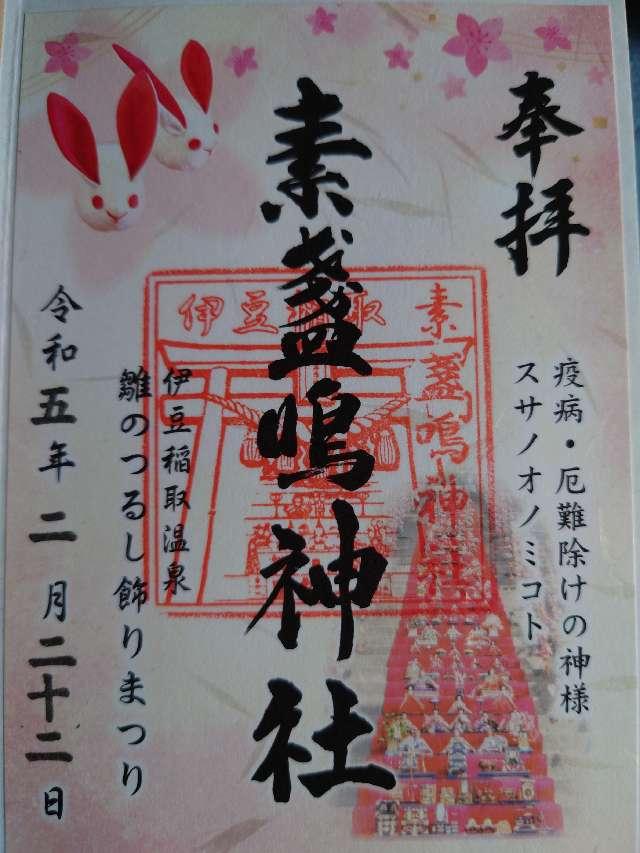 奉拝
疫病・厄難除けの神様
スサノオノミコト
素盞嗚神社
伊豆稲取
素盞嗚神社
伊豆稲取温泉
雛のつるし飾りまつり
令和五年二月二十二日